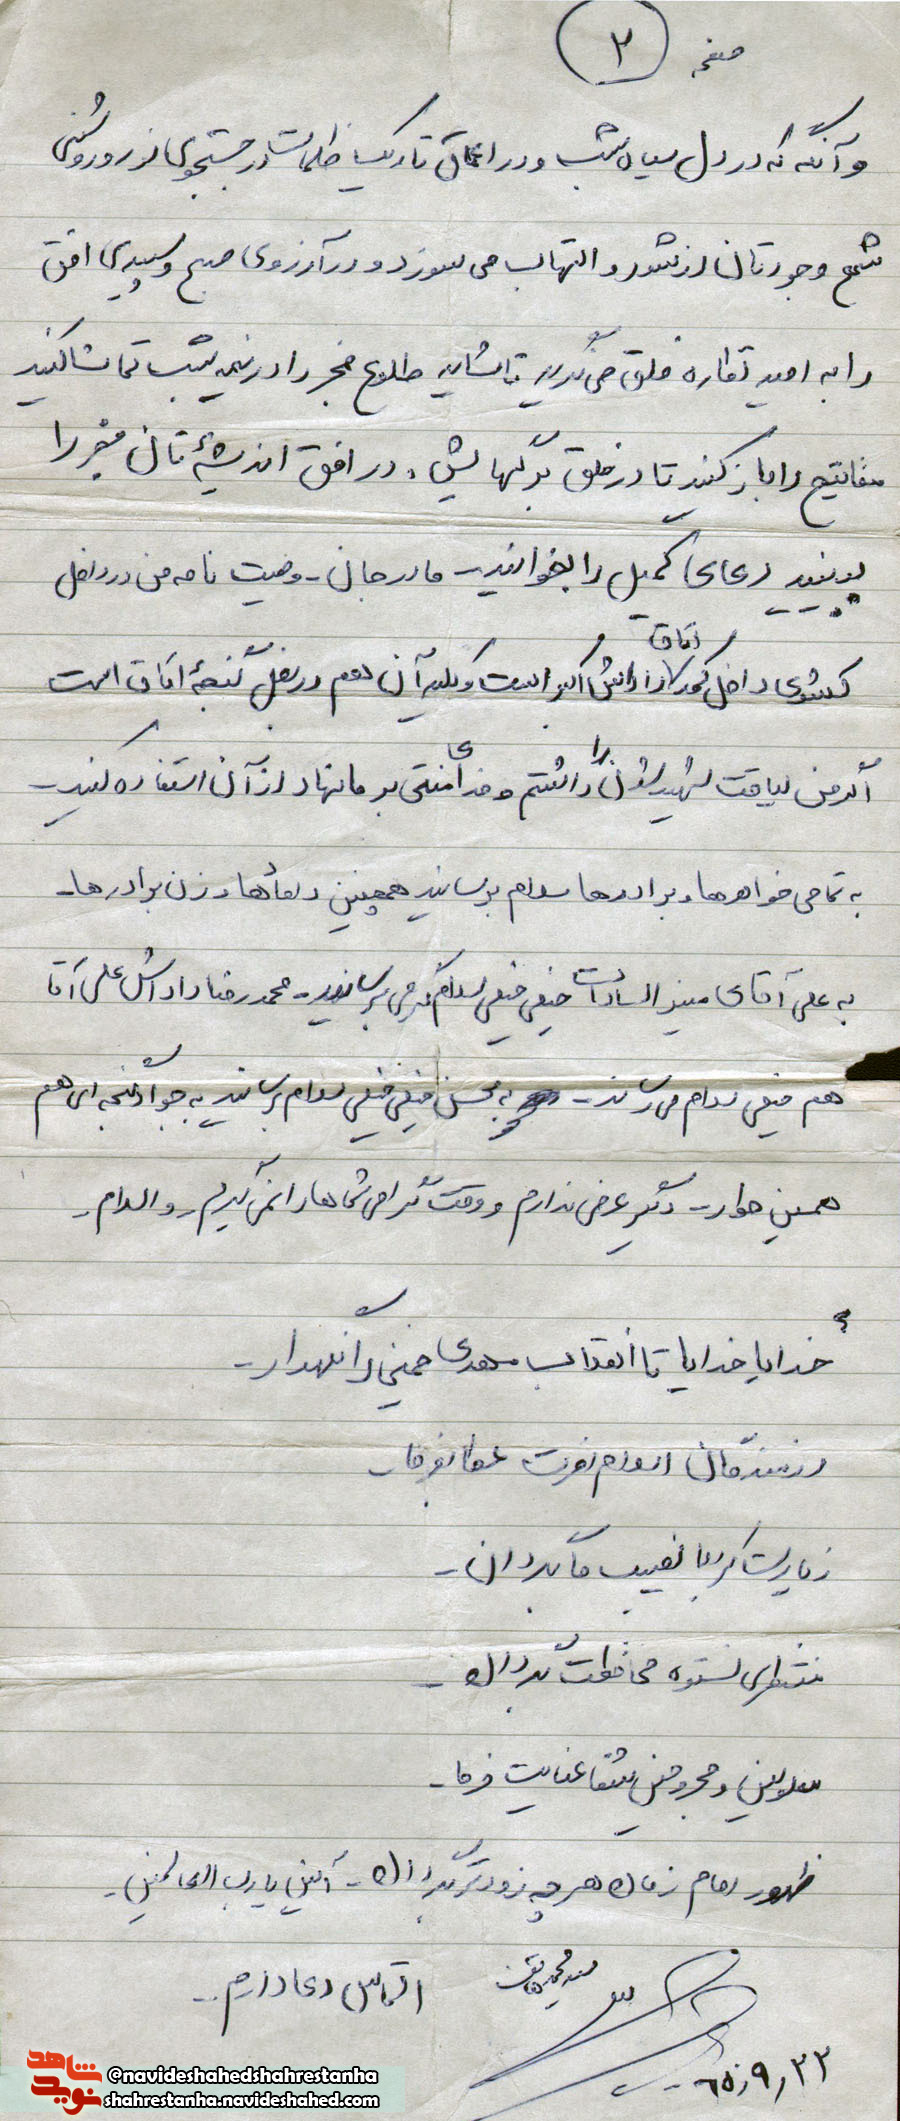 صفحه ۲
و آنگه که در دل سیاه شب و در اعماق تاریک ظلمات در جستجوی نور و روشنی
شمع وجودتان از شور و التهاب می سوزد و در آرزوی صبح و سپیدی افق
را به امید نظاره فلق می نگرید تا شاید طلوع فجر را در نیمه شب تماشا کنید
مفاتیح را باز کنید تا در خلق برگهایش، در افق اندیشه تان فجر را
ببینید دعای کمیل را بخوانید - مادر جان - وصیت نامه من در داخل
کشوی داخل کمد اتاق داداش اکبر است و کلید آن هم در بغل گنجه اتاق است
اگر من لیاقت شهید شدن را داشتم و خدا منتی بر ما نهاد از آن استفاده کنید -
به تمامی خواهرها و برادرها سلام برسانید همچنین دامادها و زن برادرها -
به علی آقای میند السادات خیلی خیلی سلام گرمی برسانید - محمدرضا داداش علی آقا
هم خیلی سلام می رساند - به محسن خیلی خیلی سلام برسانید به جواد گنجه ای هم
همین طور - دیگر عرضی ندارم و وقت گرامی شماها را نمی گیرم - والسلام -
خدایا خدایا تا انقلاب مهدی خمینی را نگهدار -
رزمندگان اسلام نصرت عطا بفرما -
زیارت کربلا نصیب ما بگردان -
منتظری نستوه محافظت بگردان -
معلولین و مجروحین شفا عنایت فرما -
ظهور امام زمان هر چه زودتر بگردان - آمین یا رب العالمین -
التماس دعا دارم -
۶۵,۹,۲۳
شاهد
نوید
@navideshahedshahrestanha
shahrestanha.navideshahed.com